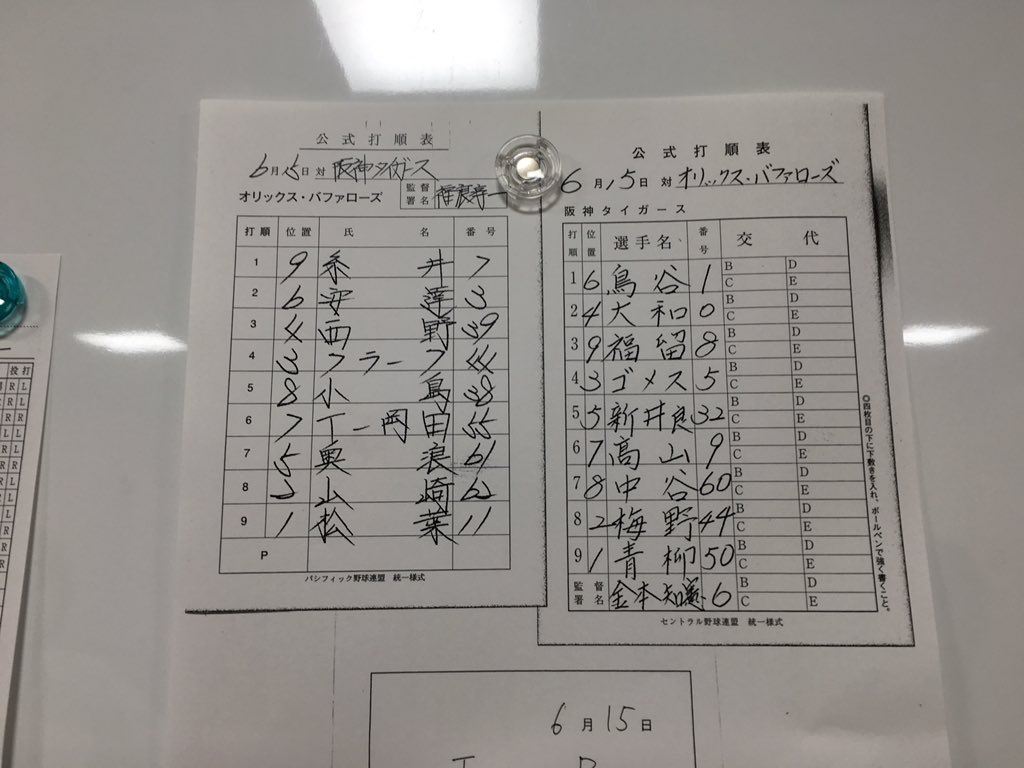 公式打順表
6月15日対 阪神タイガース
オリックス・バファローズ 監督署名 福良淳一
打順 位置 氏 名 番号
1 9 糸井 7
2 6 安達 3
3 4 西野 39
4 3 フラーフ 44
5 8 小島 38
6 7 T-岡田 55
7 5 奥浪 61
8 2 山崎 62
9 1 松葉 11
P
パシフィック野球連盟 統一様式
公式打順表
6月15日 対 オリックス・バファローズ
阪神タイガース
打順 位置 選手名 番号 交 代
1 6 鳥谷 1 B D C E
2 4 大和 0 B D C E
3 9 福留 8 B D C E
4 3 ゴメス 5 B D C E
5 5 新井良 32 B D C E
6 7 高山 9 B D C E
7 8 中谷 60 B D C E
8 2 梅野 44 B D C E
9 1 青柳 50 B D C E
監督署名 金本知憲 6 B D C E
セントラル野球連盟 統一様式
◎四枚目の下に下敷きを入れ、ボールペンで強く書くこと。
6月15日
投 打